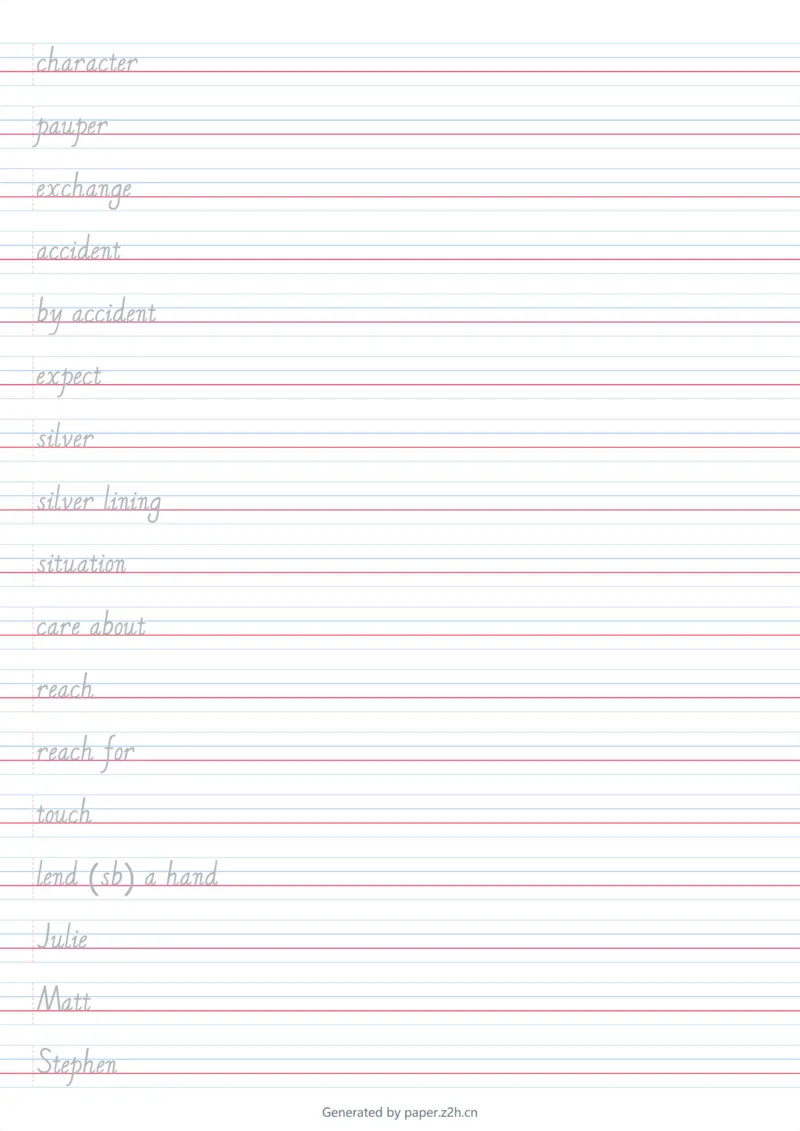 character
pauper
exchange
accident
by accident
expect
silver
silver lining
situation
care about
reach
reach for
touch
lend (sb) a hand
Julie
Matt
Stephen
Generated by paper.z2h.cn